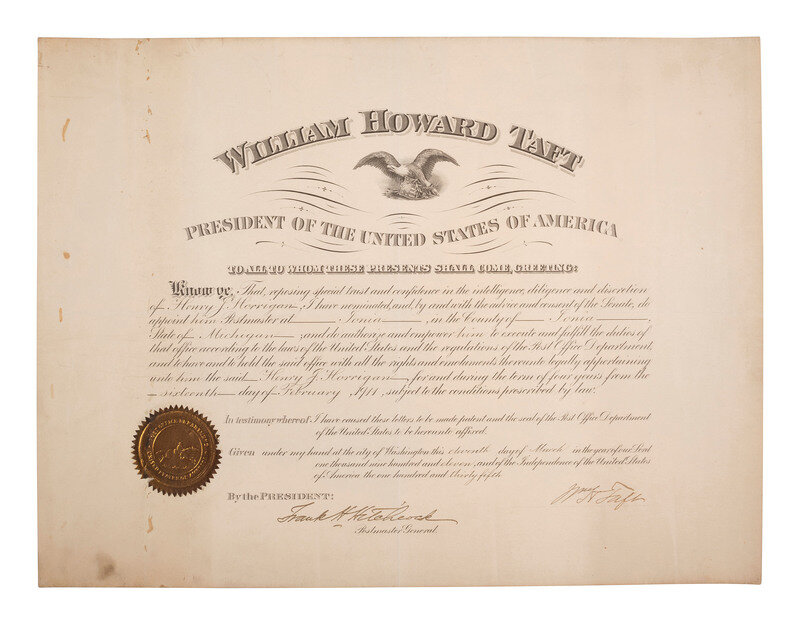 WILLIAM HOWARD TAFT
PRESIDENT OF THE UNITED STATES OF AMERICA
TO ALL TO WHOM THESE PRESENTS SHALL COME, GREETING:
Know ye, That, reposing special trust and confidence in the intelligence, diligence and discretion
of Henry J. Horrigan, I have nominated, and by and with the advice and consent of the Senate, do
appoint him Postmaster at Ionia, in the County of Ionia,
State of Michigan, and do authorize and empower him to execute and fulfill the duties of
that office according to the laws of the United States and the regulations of the Post Office Department
and to have and to hold the said office with all the rights and emoluments thereunto legally appertaining
unto him the said Henry J. Horrigan for and during the term of four years from the
sixteenth day of February, 1911, subject to the conditions prescribed by law.
In testimony whereof I have caused these letters to be made patent and the seal of the Post Office Department
of the United States to be hereunto affixed.
Given under my hand at the city of Washington this eleventh day of March in the year of our Lord
one thousand nine hundred and eleven, and of the Independence of the United States
of America the one hundred and thirty fifth.
By the PRESIDENT:
Wm H Taft
Frank H Hitchcock
Postmaster General.